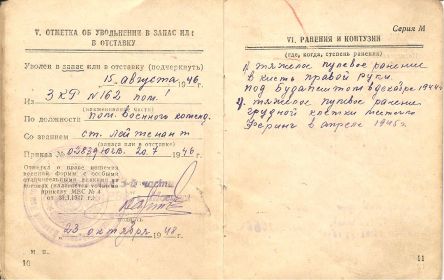 V. ОТМЕТКА ОБ УВОЛЬНЕНИИ В ЗАПАС ИЛИ
В ОТСТАВКУ
Уволен в запас или в отставку (подчеркнуть)
15 августа 1946 г.
Из ЗКР №162 пом.
(наименование части)
По должности пом. военного коменд.
Со званием ст. лейтенант
(запаса или в отставке)
Приказ № 02839 ЮГВ. 20.7 1946 г.
Отметка о праве ношения
военной формы с особыми
отличительными знаками на
погонах
приказу МВС № 4
1947 г.)
часть
подпись
23 октября 1948 г.
М. П.
10
Серия М
VI. РАНЕНИЯ И КОНТУЗИИ
(где, когда, степень ранения)
1) тяжелое пулевое ранение
в кисть правой руки
под Будапештом в декабре 1944 г.
2) тяжелое пулевое ранение
грудной клетки местечко
Феринг в апреле 1945 г.
11